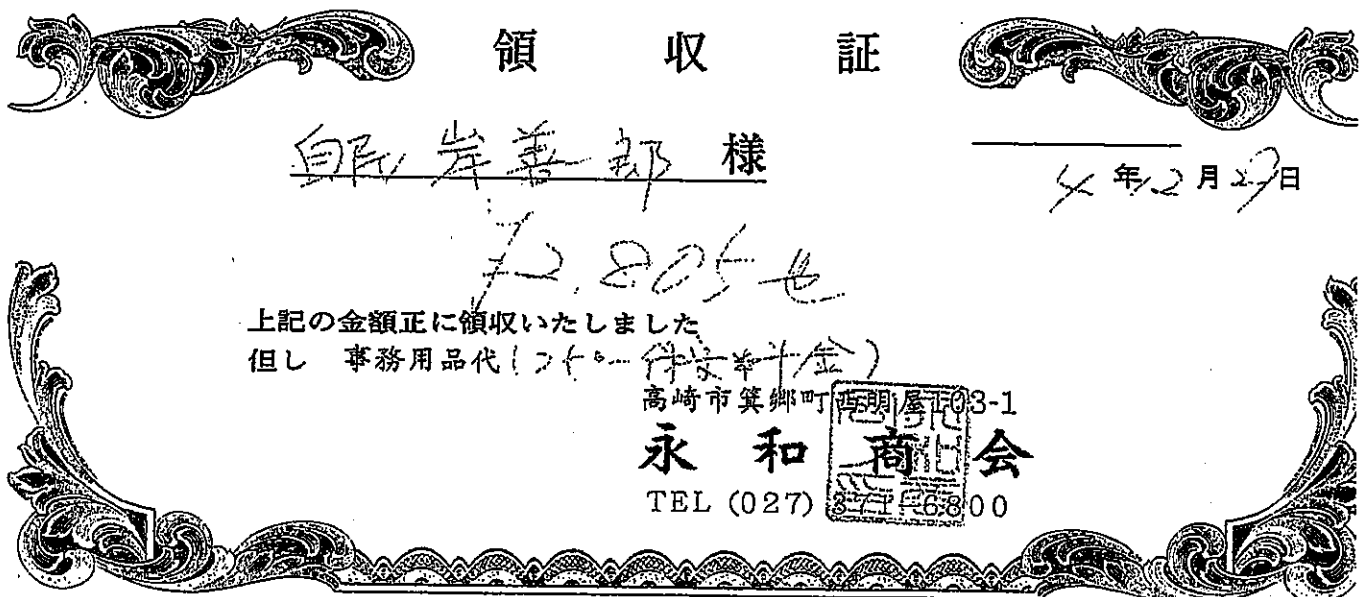 領収証
自民 岸善一郎 様
4年12月27日
¥2,805也
上記の金額正に領収いたしました
但し 事務用品代(コピー保守料金)
高崎市箕郷町西明屋103-1
永和商会
TEL (027) 371-6800